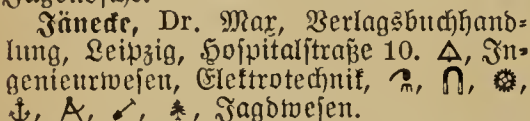 Jänecke, Dr. Max, Verlagsbuchhand=
lung, Leipzig, Hospitalstraße 10. △, In=
genieurwesen, Elektrotechnik,
Jagdwesen.